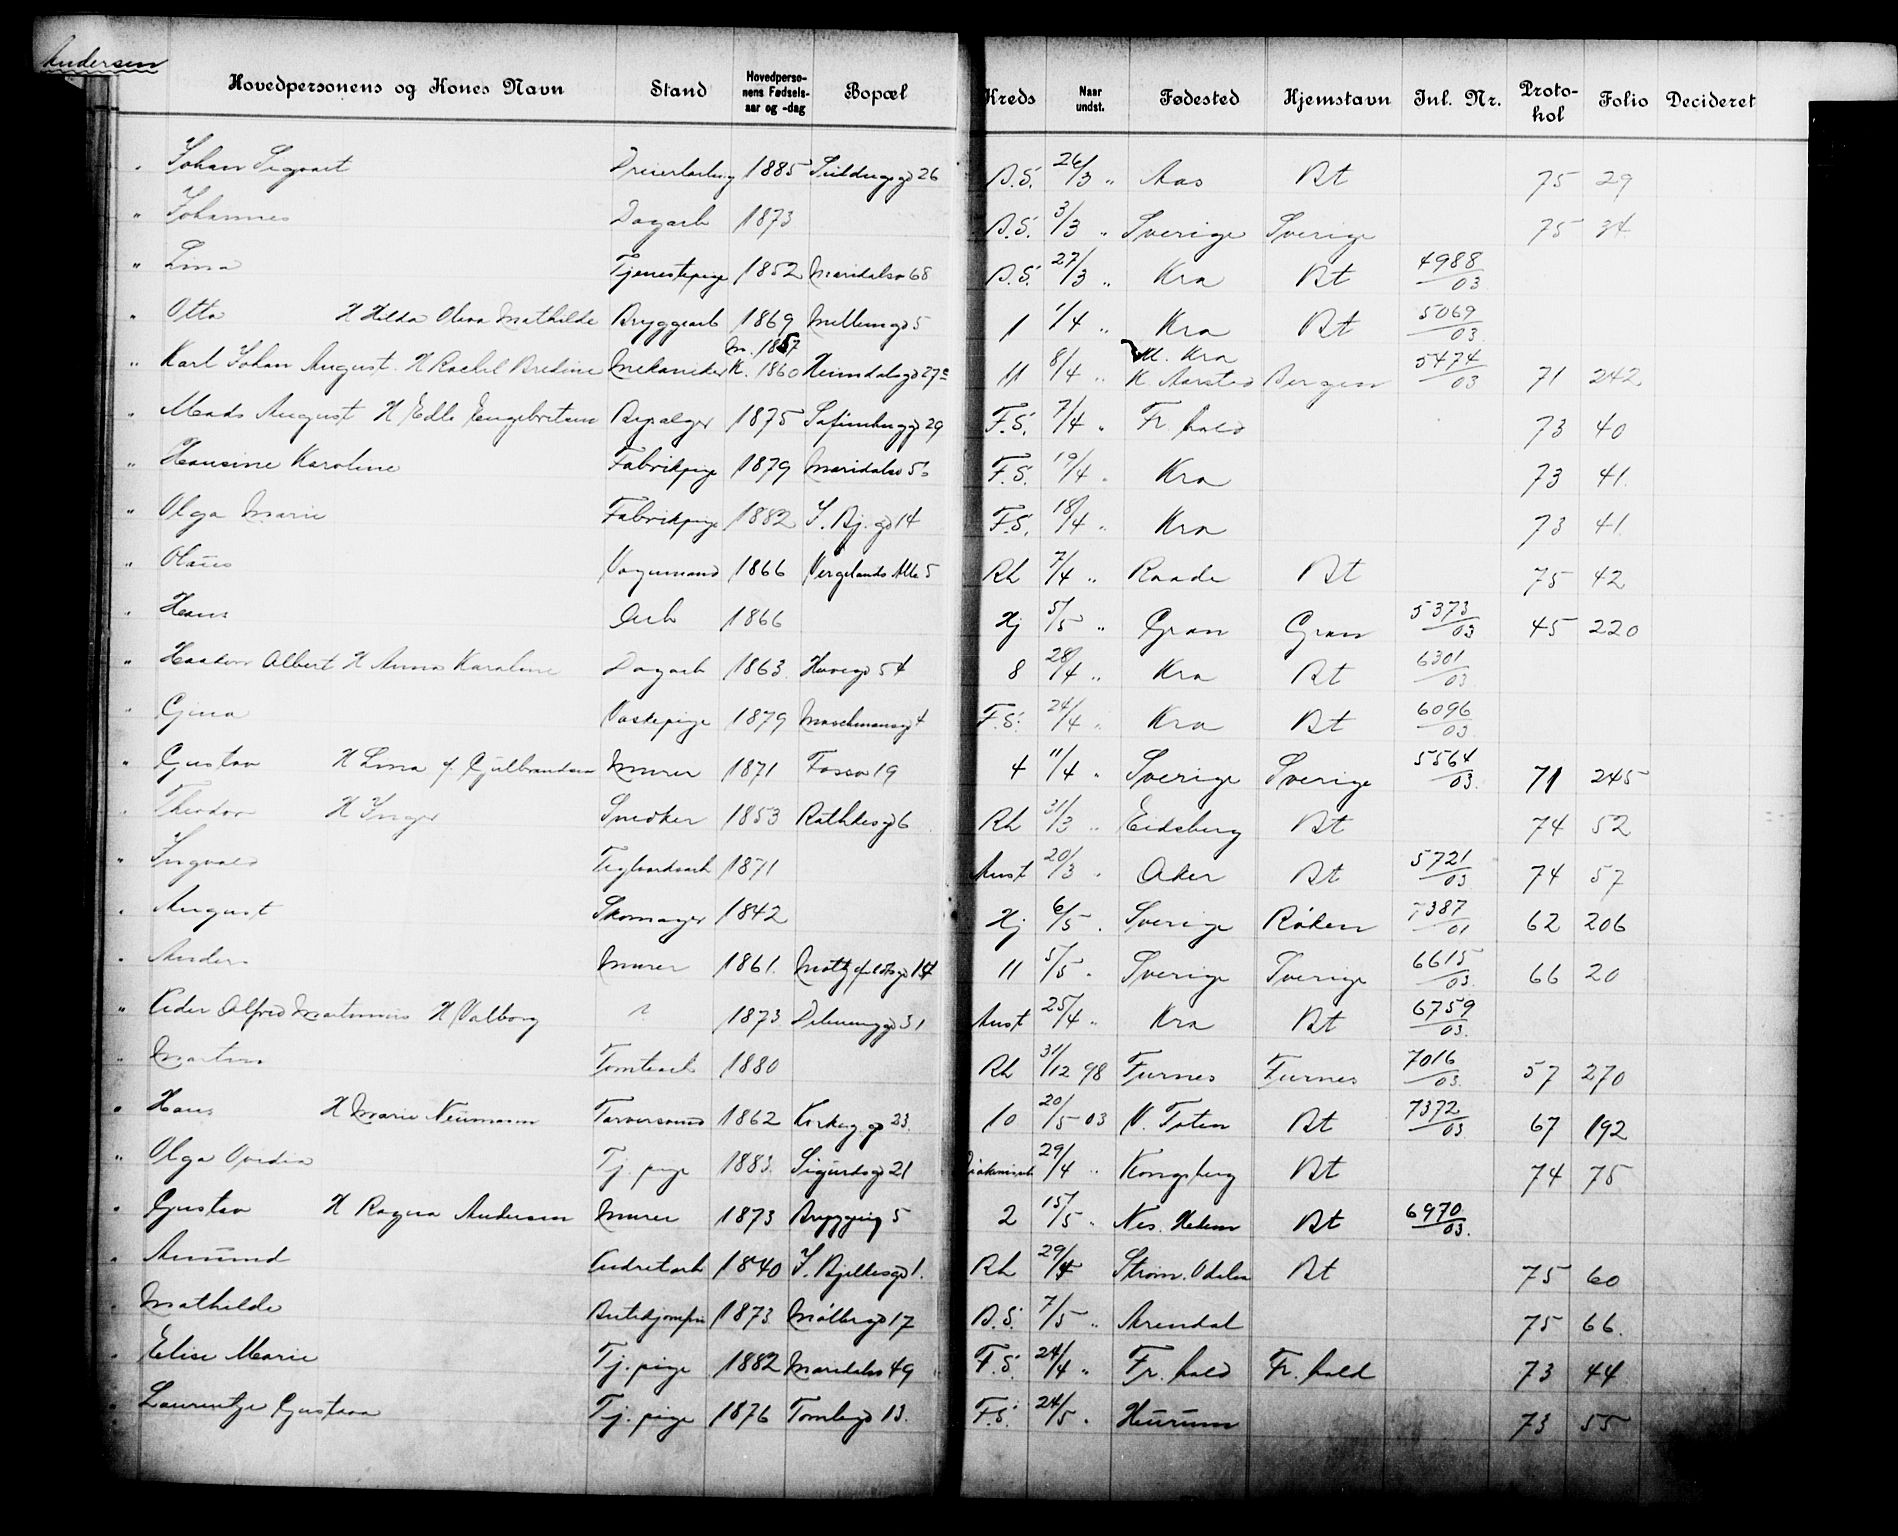 Andersen
Hovedpersonens og Kones Navn Stand Hovedpersonens Fødselsaar og -dag Bopæl Kreds Naar undst. Fødested Hjemstavn Inl. Nr. Protokol Folio Decideret
" Johan Sigvart 1885 26 B.S. 26/3 " Aas Bt 75 29
" Johannes Dagarb 1873 B.S. 3/3 " Sverige Sverige 75 34
" Lina Tjenestepige 1852 Maridalsv 68 B.S. 27/3 " Kra Bt 4988/03
" Otto H Hilda Olava Mathilde Bryggearb 1869 Møllergd 5 1 1/4 " Kra Bt 5069/03
" Karl Johan August. H Rachel Bredine Mekaniker M. 1857 K. 1860 Heimdalsgd 27 11 8/4 " M. Kra K. Aarstad Bergen 5474/03 71 242
" Mads August H Edle Engebretsen 1875 29 F.S. 7/4 " Fr. hald 73 40
" Hansine Karoline Fabrikpige 1879 Maridalsv F.S. 19/4 " Kra 73 41.
" Olga Marie Fabrikpige 1882 J. Bj. gd 14 F.S. 18/4 " Kra 73 41.
" Olaus Vognmand 1866 Vergelands Alle 5 Rh 7/4 " Raade Bt 75 42
" Hans Arb 1866 Hj 5/5 " Gran Gran 5373/03 45 220
" Haakon Albert H Anna Karoline Dagarb 1863. 54 8 28/4 " Kra Bt 6301/03
" Gina Vaskepige 1879 4 F.S. 24/4 " Kra Bt 6096/03
" Gustav H Lina f. Gulbrandsen Murer 1871 Fossv 19 4 11/4 " Sverige Sverige 5564/03. 71 245
" Theodor H Inger Snedker 1853 Rathkesgd 6 Rh 31/3 " Eidsberg Bt 74 52
" Ingvald Teglverksarb 1871 Aust 20/3 " Aker Bt 5721/03 74 57
" August Skomager 1842 Hj 6/5 " Sverige Røken 7387/01 62 206
" Anders Murer 1861. 14 11 5/5 " Sverige Sverige 6615/03. 66 20
" Peder Alfred Martinius H Valborg " 1873 31 Aust 25/4 " Kra Bt 6759/03.
" Martin Tomtearb 1880 Rh 31/12 98 Furnes Furnes 7016/03. 57 270
" Hans H Marie Neumann 1862 Korkeg gd 23. 10 20/5 03 V. Toten Bt 7372/03 67 192
" Olga Ovedia Tj. pige 1883. Sigurdsgd 21 29/4 " Kongsberg Bt 74 75
" Gustav H Ragna Andersen Murer 1873 5 2 15/5 " Nes. Hedm Bt 6970/03.
" Amund 1840 J. Bjelkesgd 1. Rh 29/4 Strøm. Odalen Bt 75 60
" Mathilde Butikjomfru 1873. Møllergd 17 B.S. 7/5 " Arendal 75 66.
" Elise Marie Tj. pige 1882 Maridalsv 49 F.S. 24/4 " Fr. hald Fr. hald 73 44
" Laurentze Gustava Tj. pige 1876 Tomtegd 13. F.S. 24/5 " Hurum 73 55